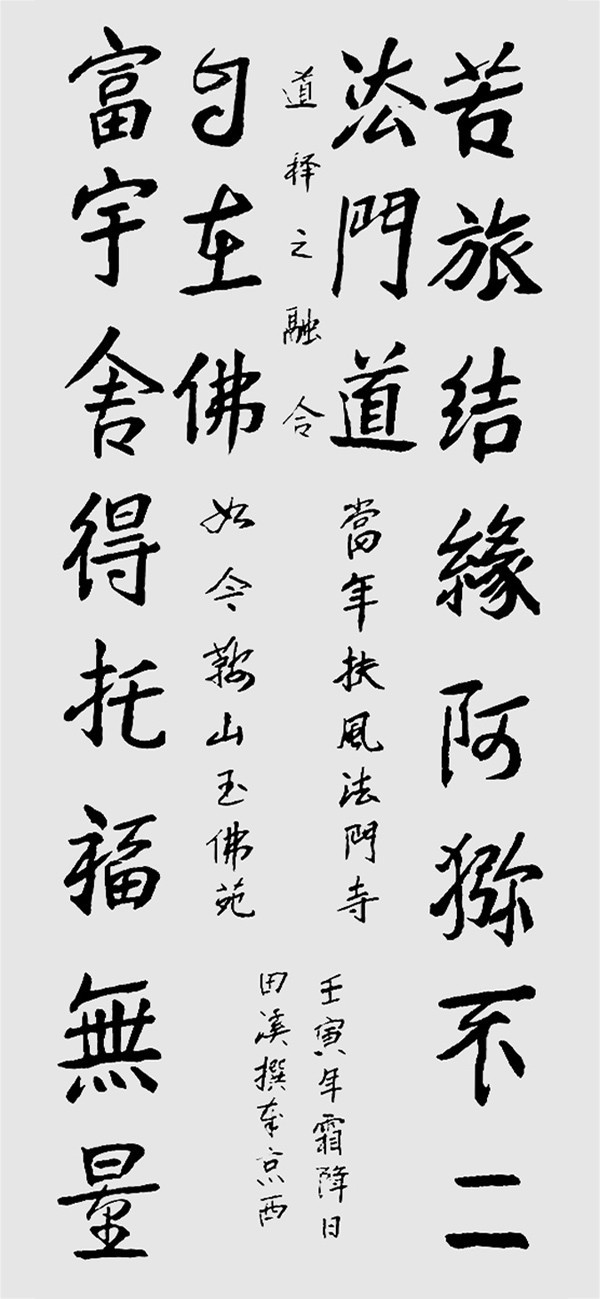 苦旅结緣阿猕不二
法門道
當年扶風法門寺
壬寅年霜降日
道释之融合
田溪撰奉京西
自在佛
如今鞍山玉佛苑
富宇舍得托福無量